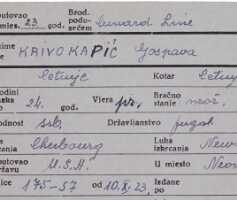 utovao
mies. 23 god. Brod. podu- zećem Cunard Line
zime
me KRIVOKAPIĆ Gospava
Cetinje Kotar Cetin
24. god. Vjera pr. Bračno stanje neož.
odnost srb. Državljanstvo jugosl
Cherbourg Luka Iskrcanja New
putovao U.S.A. U mjesto New
nice 175-57 od 10.X.23. Izdane po